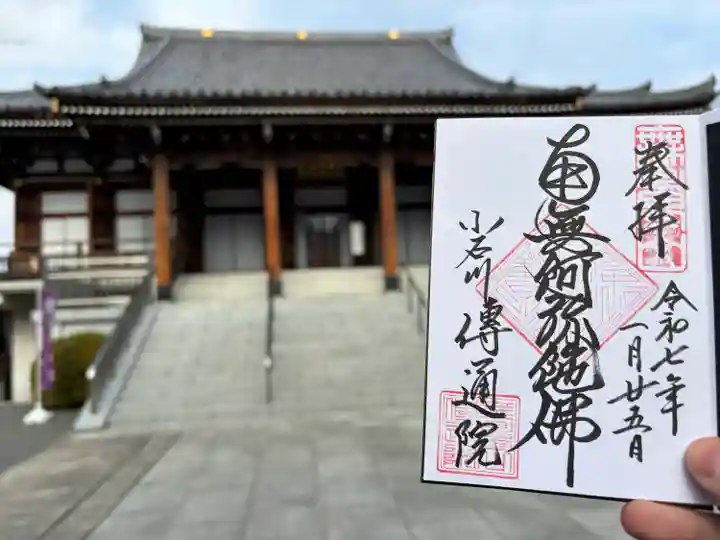 奉拝
令和七年
一月廿五月
南無阿弥陀佛
小石川
傳通院